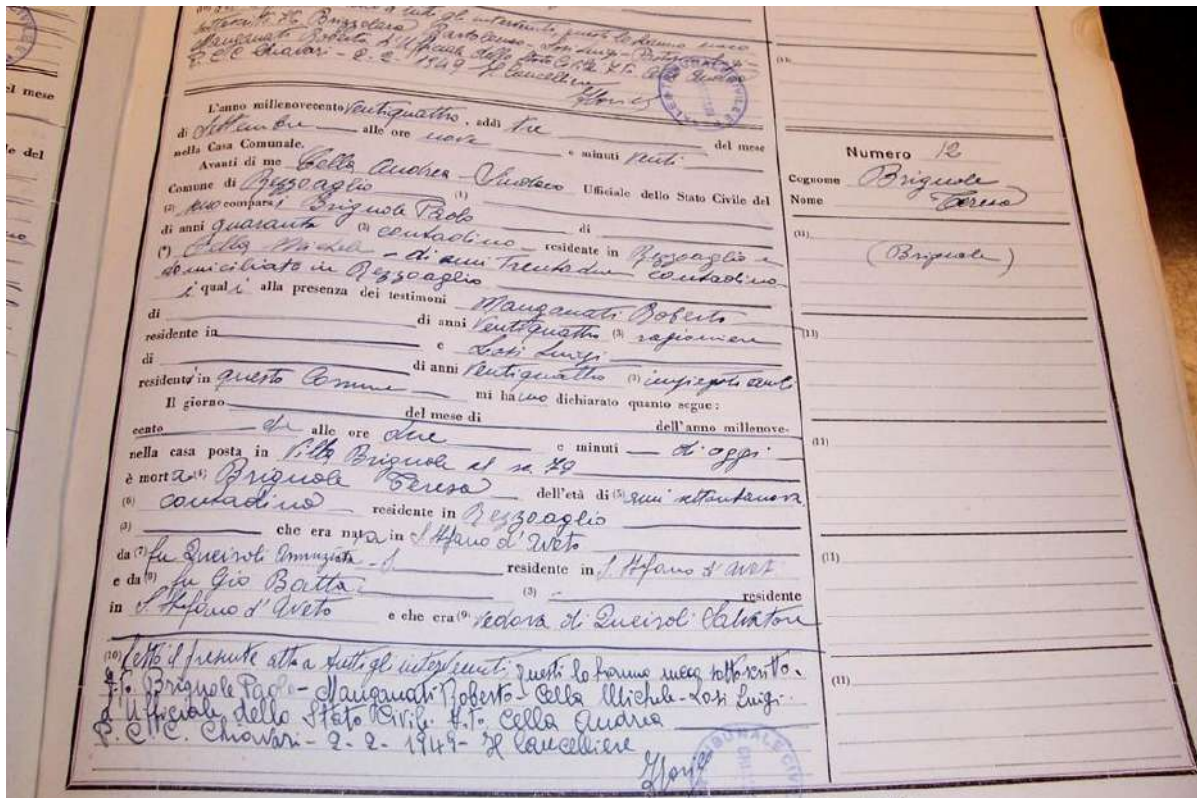 sottoscritto F.to Brizzolara Bartolomeo - Losi Luigi -
Manganati Roberto L'Ufficiale dello Stato Civile F.to Cella Andrea
P.C.C. Chiavari - 2-2-1949 Il Cancelliere
L'anno millenovecento Ventiquattro, addì tre
di Settembre alle ore nove e minuti Venti del mese
nella Casa Comunale.
Avanti di me Cella Andrea - Sindaco Ufficiale dello Stato Civile del
Comune di Rezzoaglio (1)
(2) sono comparsi Brignole Paolo di
di anni quaranta (3) contadino residente in Rezzoaglio e
(4) Cella Michele - di anni Trentadue contadino
domiciliato in Rezzoaglio
i quali alla presenza dei testimoni Manganati Roberto
di di anni Ventiquattro (3) ragioniere
residente in e Losi Luigi
di di anni Ventiquattro (3) impiegato
residenti in questo Comune mi hanno dichiarato quanto segue:
Il giorno del mese di dell'anno millenove-
cento di alle ore due e minuti di oggi
nella casa posta in Villa Brignole al n. 79
è morta (4) Brignole Teresa dell'età di (5) anni settantanove
(6) contadina residente in Rezzoaglio
(3) che era nata in S. Stefano d'Aveto
da (7) fu Queiroli Annunziata residente in S. Stefano d'Aveto
e da (9) fu Gio Batta (3) residente
in S. Stefano d'Aveto e che era (9) Vedova di Queiroli Salvatore
(10) Letto il presente atto a tutti gli intervenuti, questi lo hanno meco sottoscritto.
F.to Brignole Paolo - Manganati Roberto - Cella Michele - Losi Luigi -
L'Ufficiale dello Stato Civile F.to Cella Andrea
P.C.C. Chiavari - 2-2-1949 - Il Cancelliere
TRIBUNALE CIVILE
Numero 12
Cognome Brignole
Nome Teresa
(11)
(Brignole)
(11)
(11)
(11)
(11)